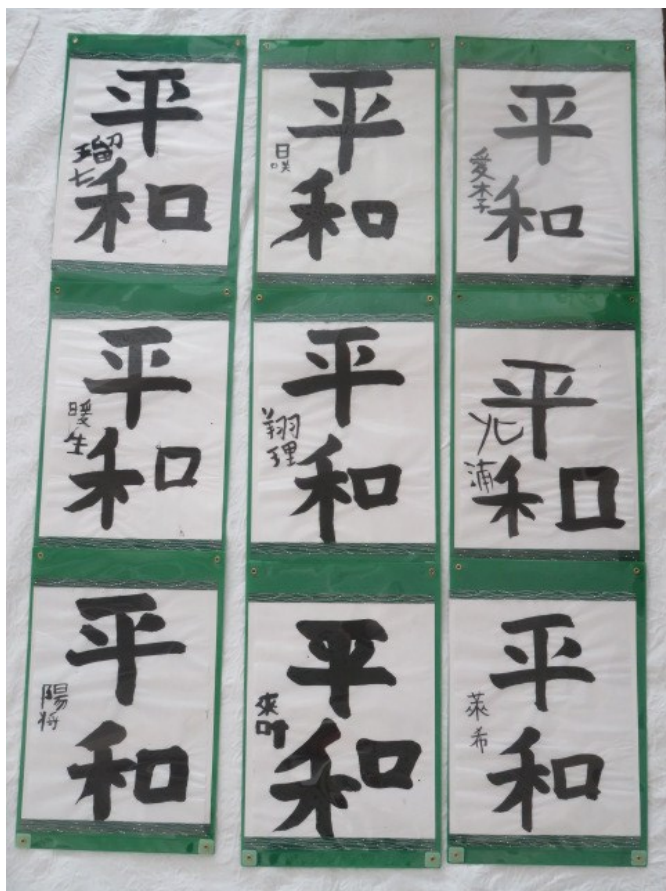 平和
瑠七
平和
日咲
平和
愛李
平和
暖生
平和
翔理
平和
浦
平和
陽将
平和
來叶
平和
萊希